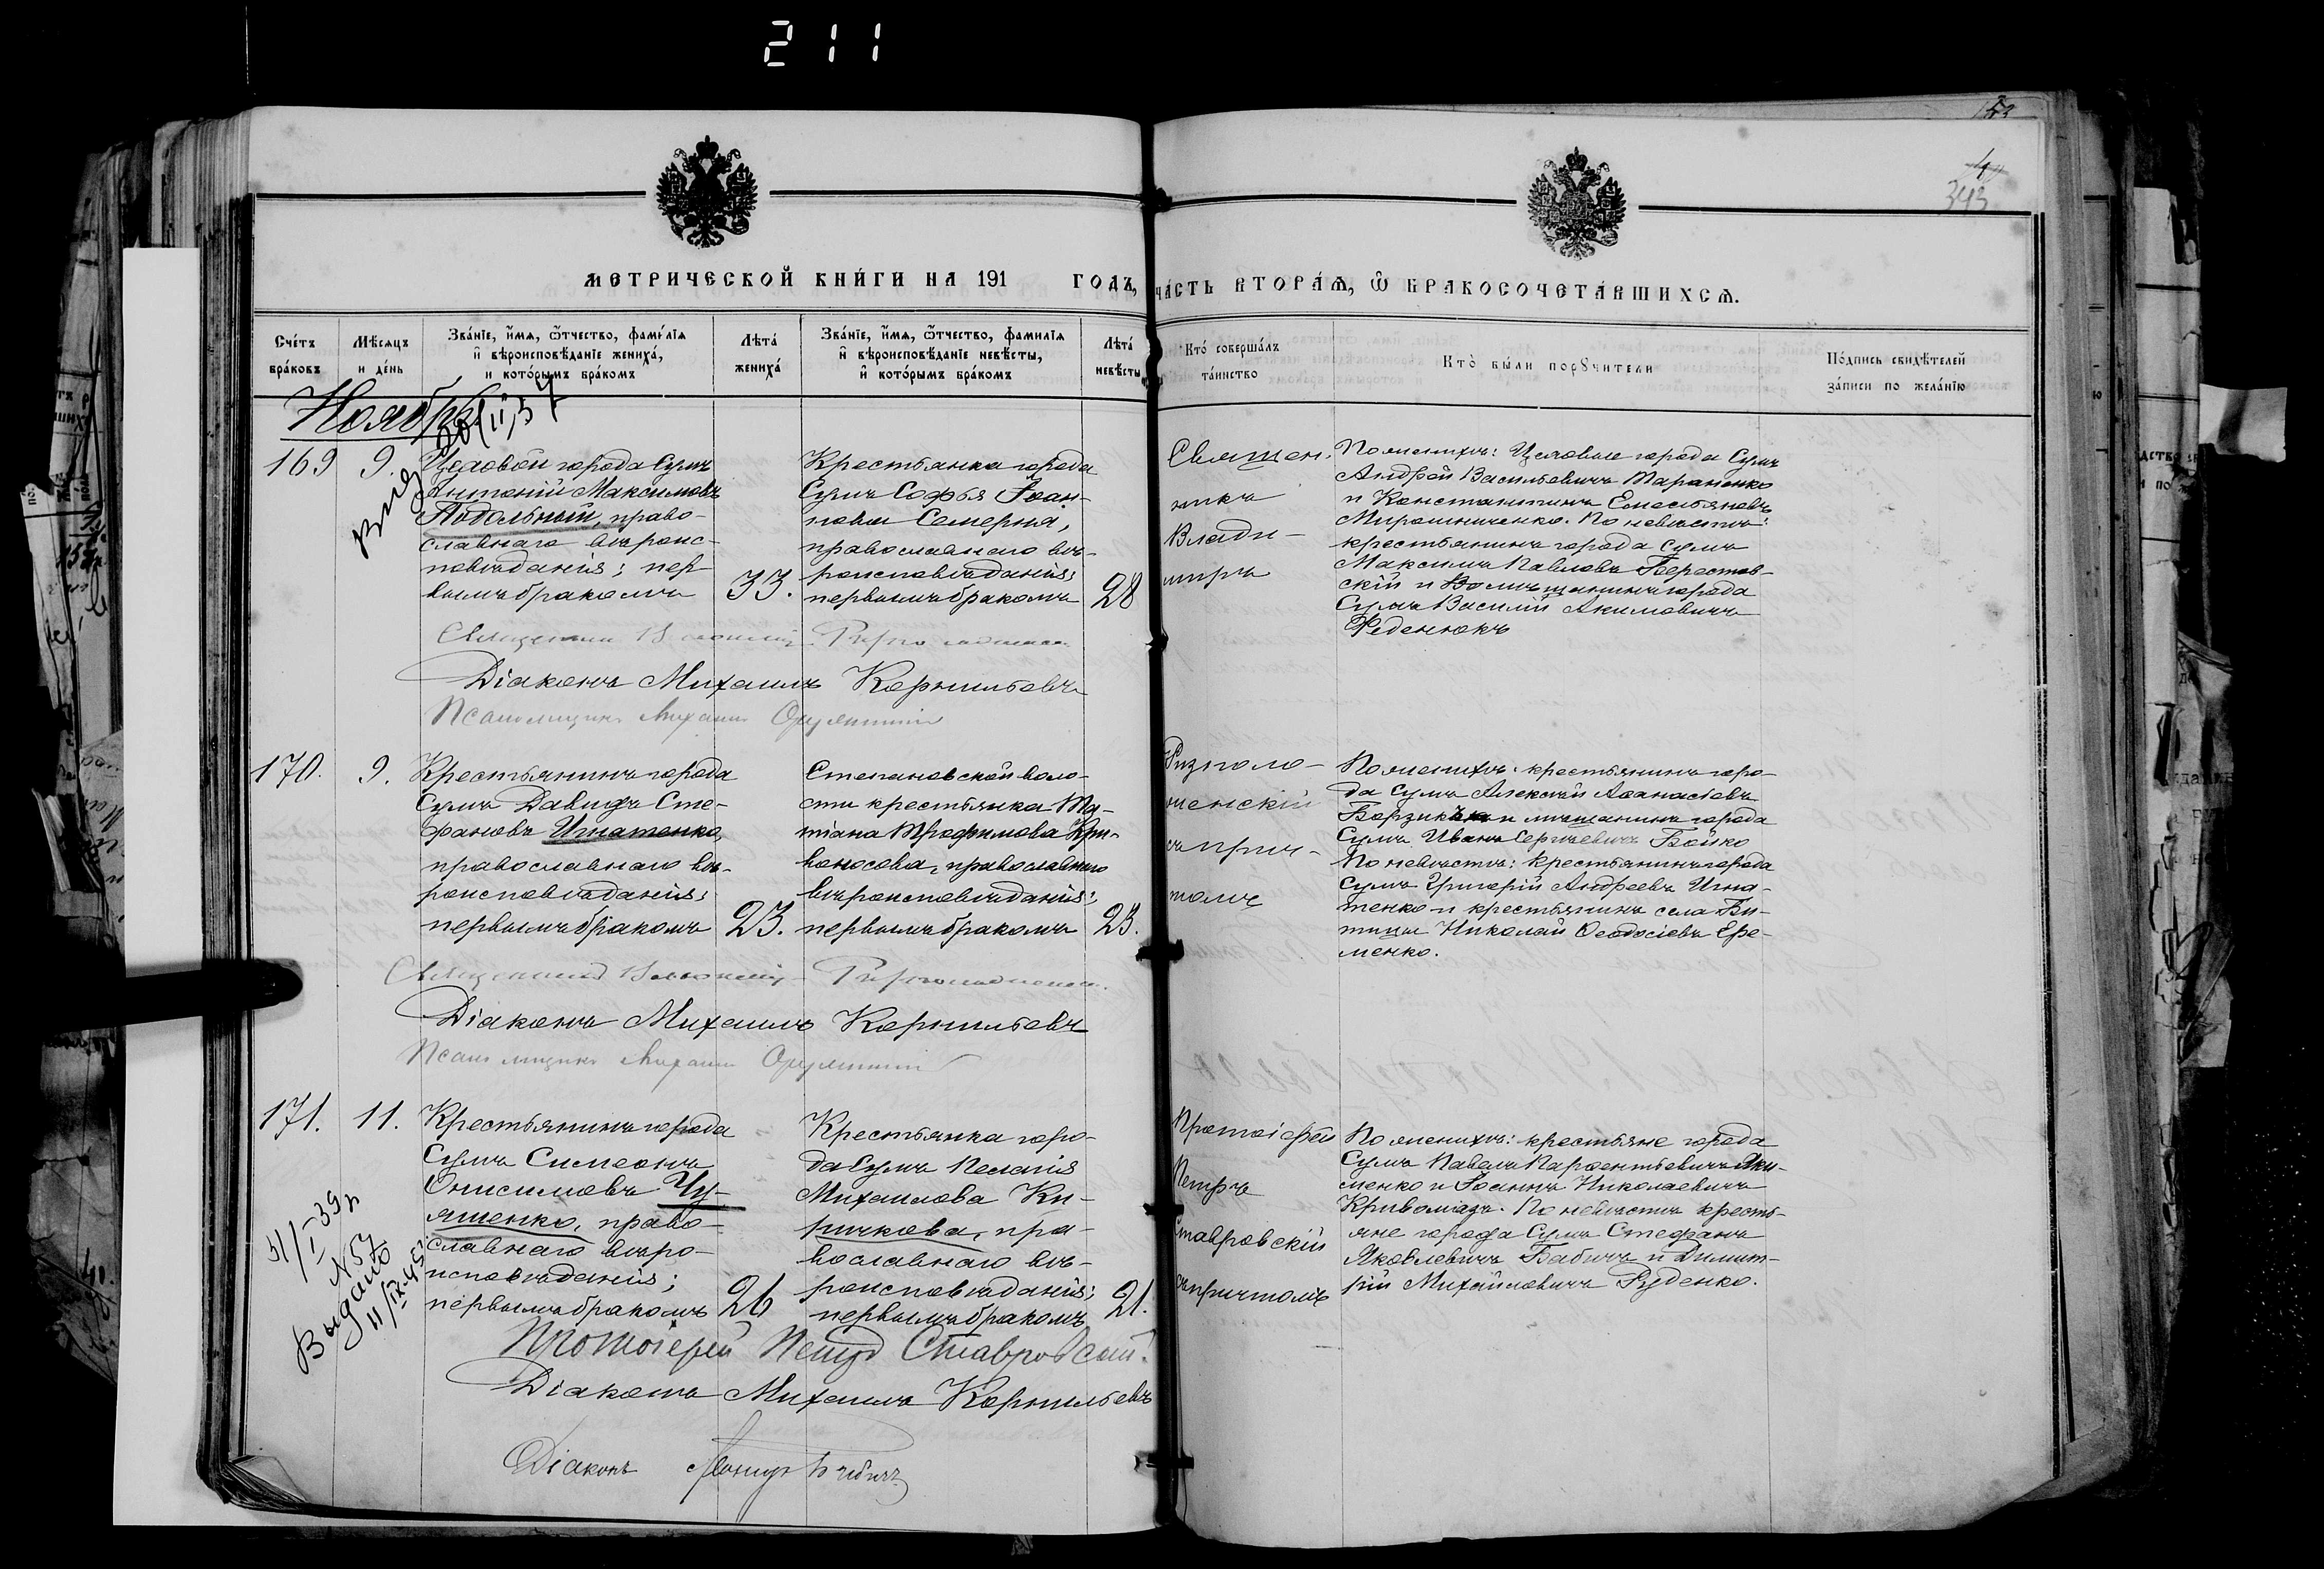 211
153
343
МЕТРИЧЕСКОЙ КНИ́ГИ НА 191 ГОДЪ, ЧА́СТЬ ВТОРА́Ѧ, Ѡ БРАКОСОЧЕТА́ВШИХСѦ.
Сче́тъ бра́ковъ
Мѣ́сяцъ и де́нь
Зва́нїе, и́мѧ, ѻ́тчество, фами́лїя
и҆ вѣроисповѣ́данїе жениха́,
и кото́рымъ бра́комъ
Лѣта́ жениха́
Зва́нїе, и́мѧ, ѻ́тчество, фамилїя
и҆ вѣроисповѣ́данїе невѣ́сты,
и҆ кото́рымъ бра́комъ
Лѣта́ невѣ́сты
Кто́ соверша́лъ та́инство
Кто̀ были пору́чители
По́дпись свидѣ́телей за́писи по жела́нїю
Ноябрь
169 9.
Цеховой города Сумъ
Антоній Максимовъ
Подольный, право-
славнаго вѣроис-
повѣданія; пер
вымъ бракомъ
33.
Крестьянка города
Сумъ Софья Іоан-
нова Семерня,
православнаго вѣ-
роисповѣданія;
первымъ бракомъ
28
Священ-
никъ
Влади-
миръ
По женихѣ: Цеховые города Сумъ
Андрей Васильевичъ Тараненко
и Константинъ Емельяновъ
Мирошниченко. По невѣстѣ:
крестьянинъ города Сумъ
Максимъ Павловъ Берестов-
скій и мѣщанинъ города
Сумъ Василій Акимовичъ
Феденюкъ
Діаконъ Михаилъ Корнильевъ
Псаломщикъ Михаилъ
170. 9.
Крестьянинъ города
Сумъ Давидъ Сте-
фановъ Игнатенко,
православнаго вѣ-
роисповѣданія;
первымъ бракомъ
23.
Степановской воло-
сти крестьянка Та-
тіана Трофимова Кри-
воносова, православнаго
вѣроисповѣданія;
первымъ бракомъ
23.
Ризполо-
женскій
съ прич-
томъ
По женихѣ: крестьянинъ горо-
да Сумъ Алексѣй Аѳанасіевъ
и мѣщанинъ города
Сумъ Иванъ Сергѣевичъ Бойко
По невѣстѣ: крестьянинъ города
Сумъ Григорій Андреевъ Игна-
тенко и крестьянинъ села Би-
тицы Николай Ѳеодосіевъ Ере-
менко.
Діаконъ Михаилъ Корнильевъ
Псаломщикъ Михаилъ
171. 11.
Крестьянинъ города
Сумъ Симеонъ
Онисимовъ Чу-
яшенко, право-
славнаго вѣро-
исповѣданія;
первымъ бракомъ
26
Крестьянка горо-
да Сумъ Пелагія
Михаилова Ки-
ричкова, пра-
вославнаго вѣ-
роисповѣданія;
первымъ бракомъ
21.
Протоіерей
Петръ
Ставровскій
съ причтомъ
По женихѣ: крестьяне города
Сумъ Павелъ Парѳентьевичъ Яки-
менко и Іоаннъ Николаевичъ
Кривомазъ. По невѣстѣ кресть-
яне города Сумъ Стефанъ
Яковлевичъ Бабичъ и Димит-
рій Михайловичъ Руденко.
N 57
Выдано
Протоіерей Петръ Ставровскій.
Діаконъ Михаилъ Корнильевъ
Діаконъ